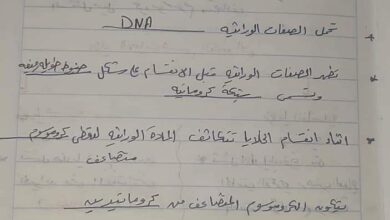 تحمل الصفات الوراثيه DNA
تظهر الصفات الوراثيه قبل الانقسام على شكل خيوط طويله رفيعه
وتسمى شبكة كروماتيه
اثناء انقسام الخلايا تتضاعف المادة الوراثيه لتعطي كروموسوم
متضاعف
يتكون الكروموسوم المتضاعف من كروماتيدين